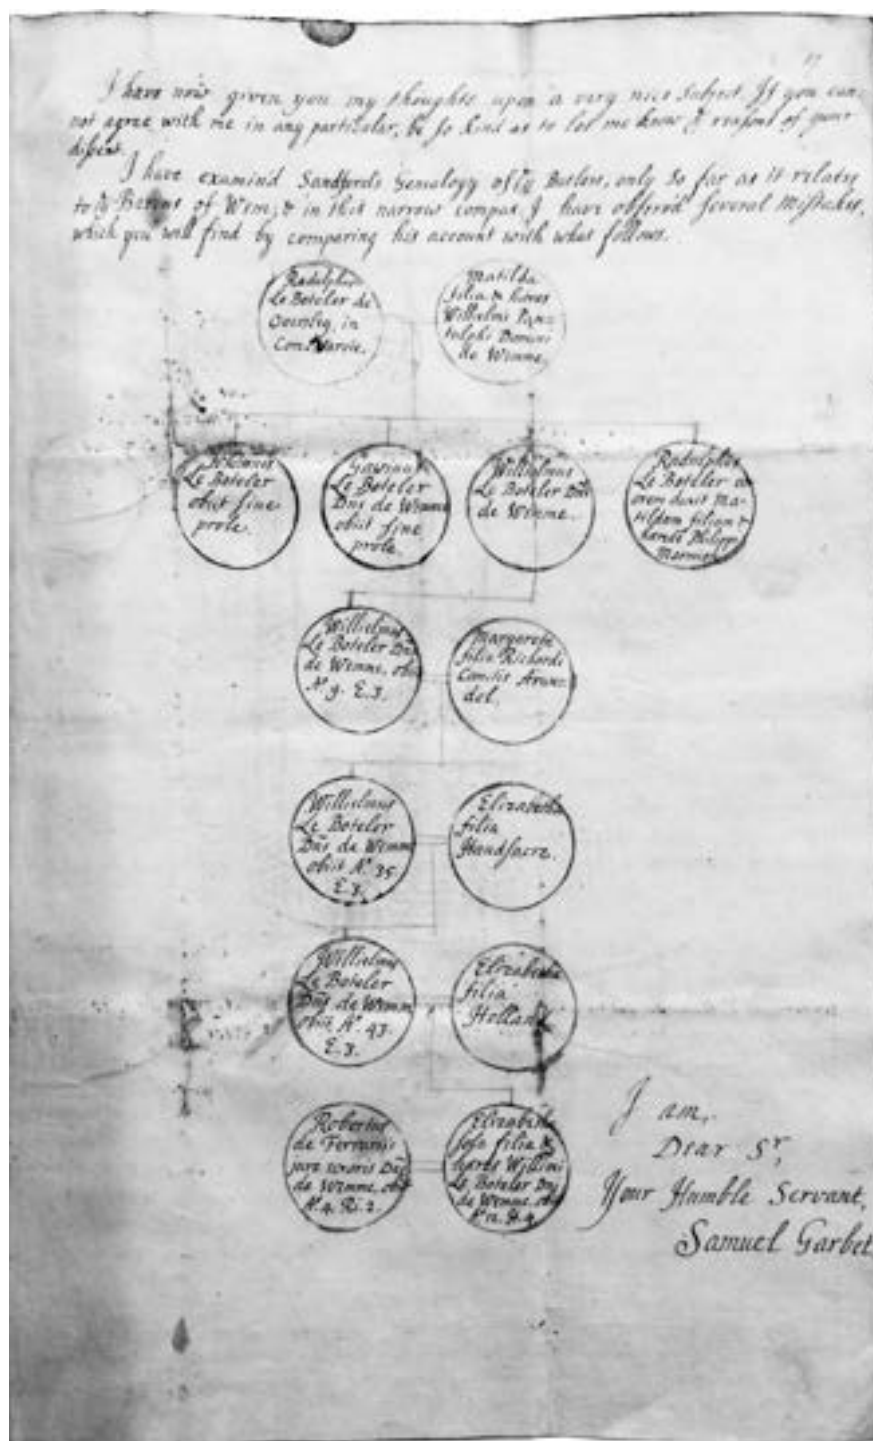 I have now given you my thoughts upon a very nice Subject. If you can
not agree with me in any particular, be so kind as to let me know yᵉ reasons of your
dissent.
I have examind Sandford's Genealogy of yᵉ Butlers, only so far as it relates
to yᵉ Barons of Wem; & in this narrow compas, I have observd several Mistakes,
which you will find by comparing his account with what follows.
Radulphus
Le Boteler de
in
Com. Warwic.
Matilda
filia & haeres
Willielmi Pan-
tulphi Domini
de Wemme.
Le Boteler
obiit sine
prole.
Gawinus
Le Boteler
Dns de Wemme
obiit sine
prole.
Willielmus
Le Boteler Dns
de Wemme.
Radulphus
Le Boteler ux-
orem duxit Ma-
tildam filiam &
haredē Philippi
Marmion
Willielmus
Le Boteler Dns
de Wemme, obiit
Aº. 9. E.3.
Margareta
filia Richardi
Comitis Arun-
del.
Willielmus
Le Boteler
Dns de Wemme
obiit Aº. 35.
E.3.
Elizabetha
filia
Handsacre.
Willielmus
Le Boteler
Dns de Wemme
obiit Aº. 43.
E.3.
Elizabetha
filia
Holland
Robertus
de Ferrariis
jure uxoris Dns
de Wemme, obiit
Aº. 4. Ri. 2.
Elizabetha
sola filia &
hæres Willmi
Le Boteler Dni
de Wemme, obiit
Aº. 12. H. 4.
I am,
Dear Sʳ,
Your Humble Servant,
Samuel Garbet